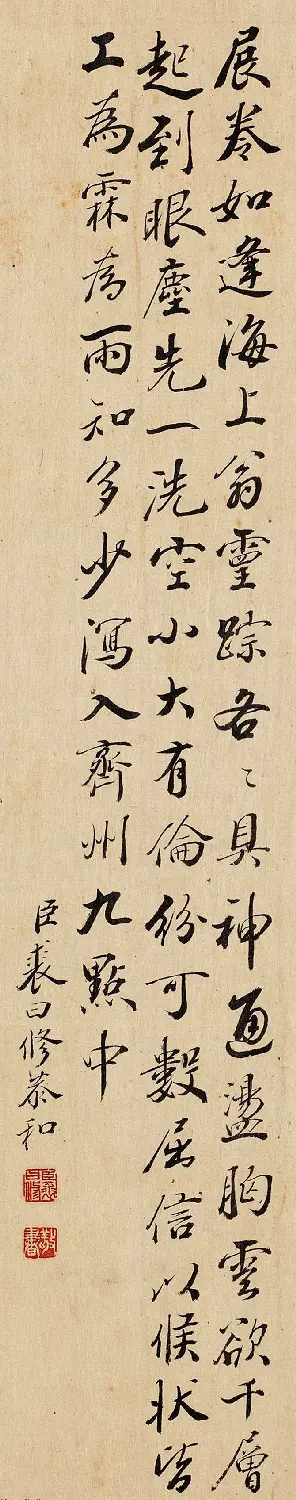 展卷如逢海上翁靈踪各〻具神通盪胸雲欲千層
起到眼塵先一洗空小大有倫紛可數屈信以候狀皆
工為霖為雨知多少瀉入齊州九點中
臣裘曰修恭和
敬書